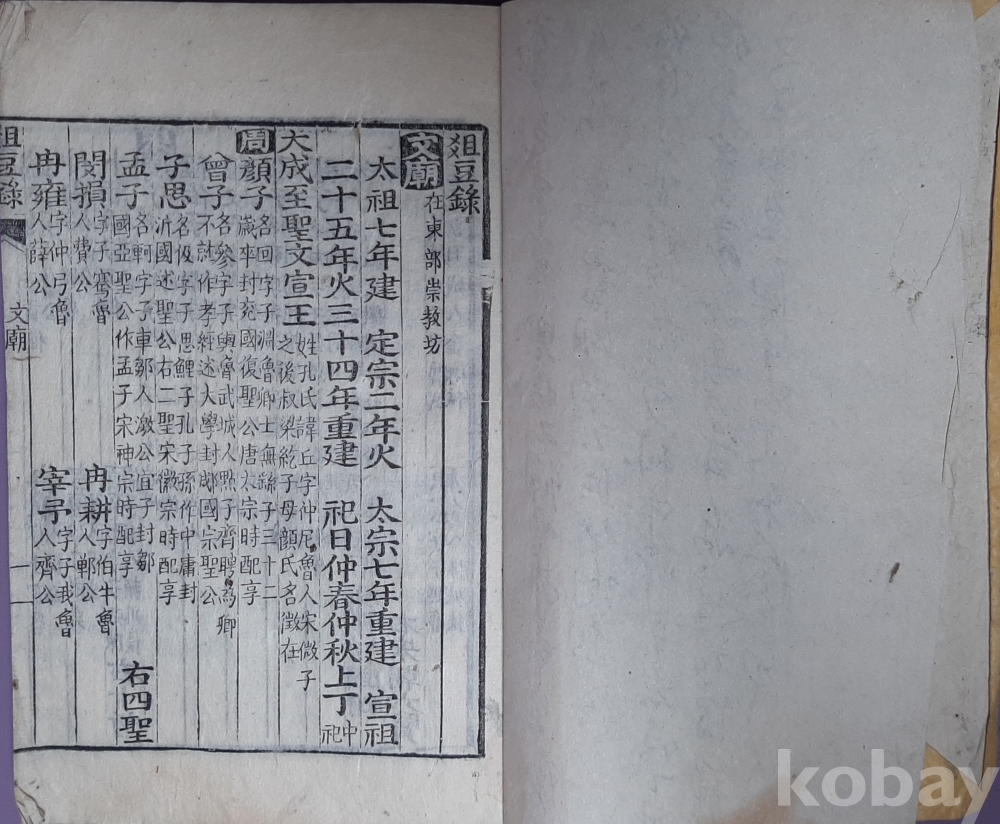 爼豆錄
文廟 在東部崇教坊
太祖七年建 定宗二年火 太宗七年重建 宣祖
二十五年火三十四年重建 祀日仲春仲秋上丁 中祀
大成至聖文宣王 姓孔氏諱丘字仲尼魯人宋微子之後叔梁紇子母顏氏名徵在
周 顏子 名回字子淵魯卿士無繇子三十二歲卒封兗國復聖公唐太宗時配享
曾子 名參字子輿魯武城人點子齊聘爲卿不就作孝經述大學封郕國宗聖公
子思 名伋字子思鯉子孔子孫作中庸封沂國述聖公右二聖宋徽宗時配享
孟子 名軻字子車鄒人激公宜子封鄒國亞聖公作孟子宋神宗時配享 右四聖
閔損 字子騫魯人費公 冉耕 字伯牛魯人鄆公
冉雍 字仲弓魯人薛公 宰予 字子我魯人齊公
爼豆錄 文廟 一
kobay